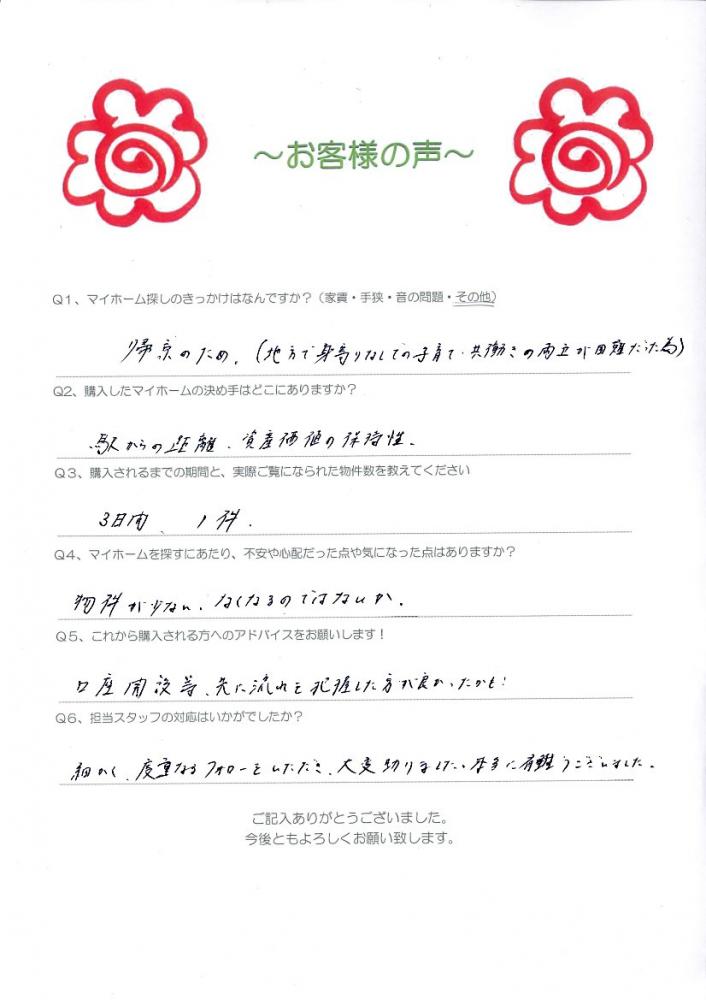 ～お客様の声～
Q1、マイホーム探しのきっかけはなんですか？（家賃・手狭・音の問題・その他）
帰京のため。（地方で身寄りなしでの子育て・共働きの両立が困難だった為）
Q2、購入したマイホームの決め手はどこにありますか？
駅からの距離、資産価値の保持性。
Q3、購入されるまでの期間と、実際ご覧になられた物件数を教えてください
3日間、1件.
Q4、マイホームを探すにあたり、不安や心配だった点や気になった点はありますか？
物件が少ない、なくなるのではないか。
Q5、これから購入される方へのアドバイスをお願いします！
口座開設等、先に流れを把握した方が良かったかも！
Q6、担当スタッフの対応はいかがでしたか？
細かく、度重なるフォローをいただき、大変助りました。本当に有難うございました。
ご記入ありがとうございました。
今後ともよろしくお願い致します。